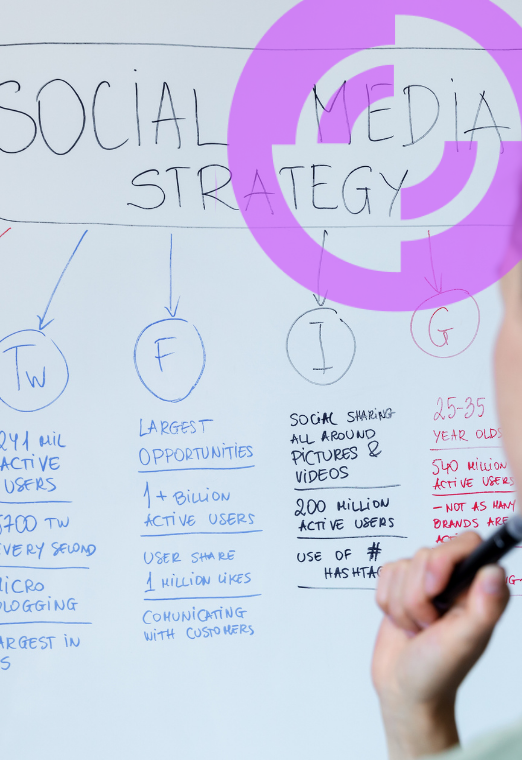 SOCIAL MEDIA
STRATEGY
TW
F
I
G
241 MIL
ACTIVE
USERS
5700 TW
EVERY SECOND
MICRO
BLOGGING
LARGEST IN
LARGEST
OPPORTUNITIES
1+ BILLION
ACTIVE USERS
USER SHARE
1 MILLION LIKES
COMUNICATING
WITH CUSTOMERS
SOCIAL SHARING
ALL AROUND
PICTURES &
VIDEOS
200 MILLION
ACTIVE USERS
USE OF #
HASHTAG
25-35
YEAR OLDS
540 MILLION
ACTIVE USERS
- NOT AS MANY
BRANDS ARE